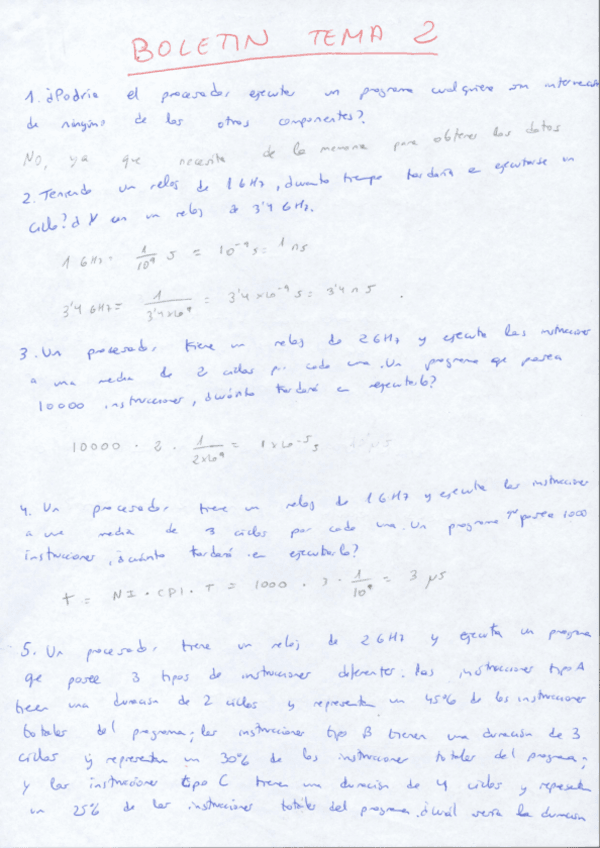 BOLETIN TEMA 2
1. ¿Podría el procesador ejecutar un programa cualquiera sin intervención
de ninguno de los otros componentes?
No, ya que necesita de la memoria para obtener los datos
2. Teniendo un reloj de 1 GHz, ¿cuánto tiempo tardaría en ejecutarse un
ciclo? ¿Y con un reloj a 3'4 GHz.
1 GHz = 1/10⁹ s = 10⁻⁹ s = 1 ns
3'4 GHz = 1/3'4x10⁹ = 3'4x10⁻⁹ s = 3'4 n s
3. Un procesador tiene un reloj de 2GHz y ejecuta las instrucciones
a una media de 2 ciclos por cada una. Un programa que posea
10000 instrucciones, ¿cuánto tardará en ejecutarlo?
10000 · 2 · 1/2x10⁹ = 1x10⁻⁵ s
4. Un procesador tiene un reloj de 1GHz y ejecuta las instrucciones
a una media de 3 ciclos por cada una. Un programa posea 1000
instrucciones, ¿cuánto tardará en ejecutarlo?
t = NI · CPI · T = 1000 · 3 · 1/10⁹ = 3 µs
5. Un procesador tiene un reloj de 2GHz y ejecuta un programa
que posee 3 tipos de instrucciones diferentes. Las instrucciones tipo A
tienen una duración de 2 ciclos y representan un 45% de las instrucciones
totales del programa; las instrucciones tipo B tienen una duración de 3
ciclos y representan un 30% de las instrucciones totales del programa;
y las instrucciones tipo C tienen una duración de 4 ciclos y representan
un 25% de las instrucciones totales del programa. ¿Cuál sería la duración